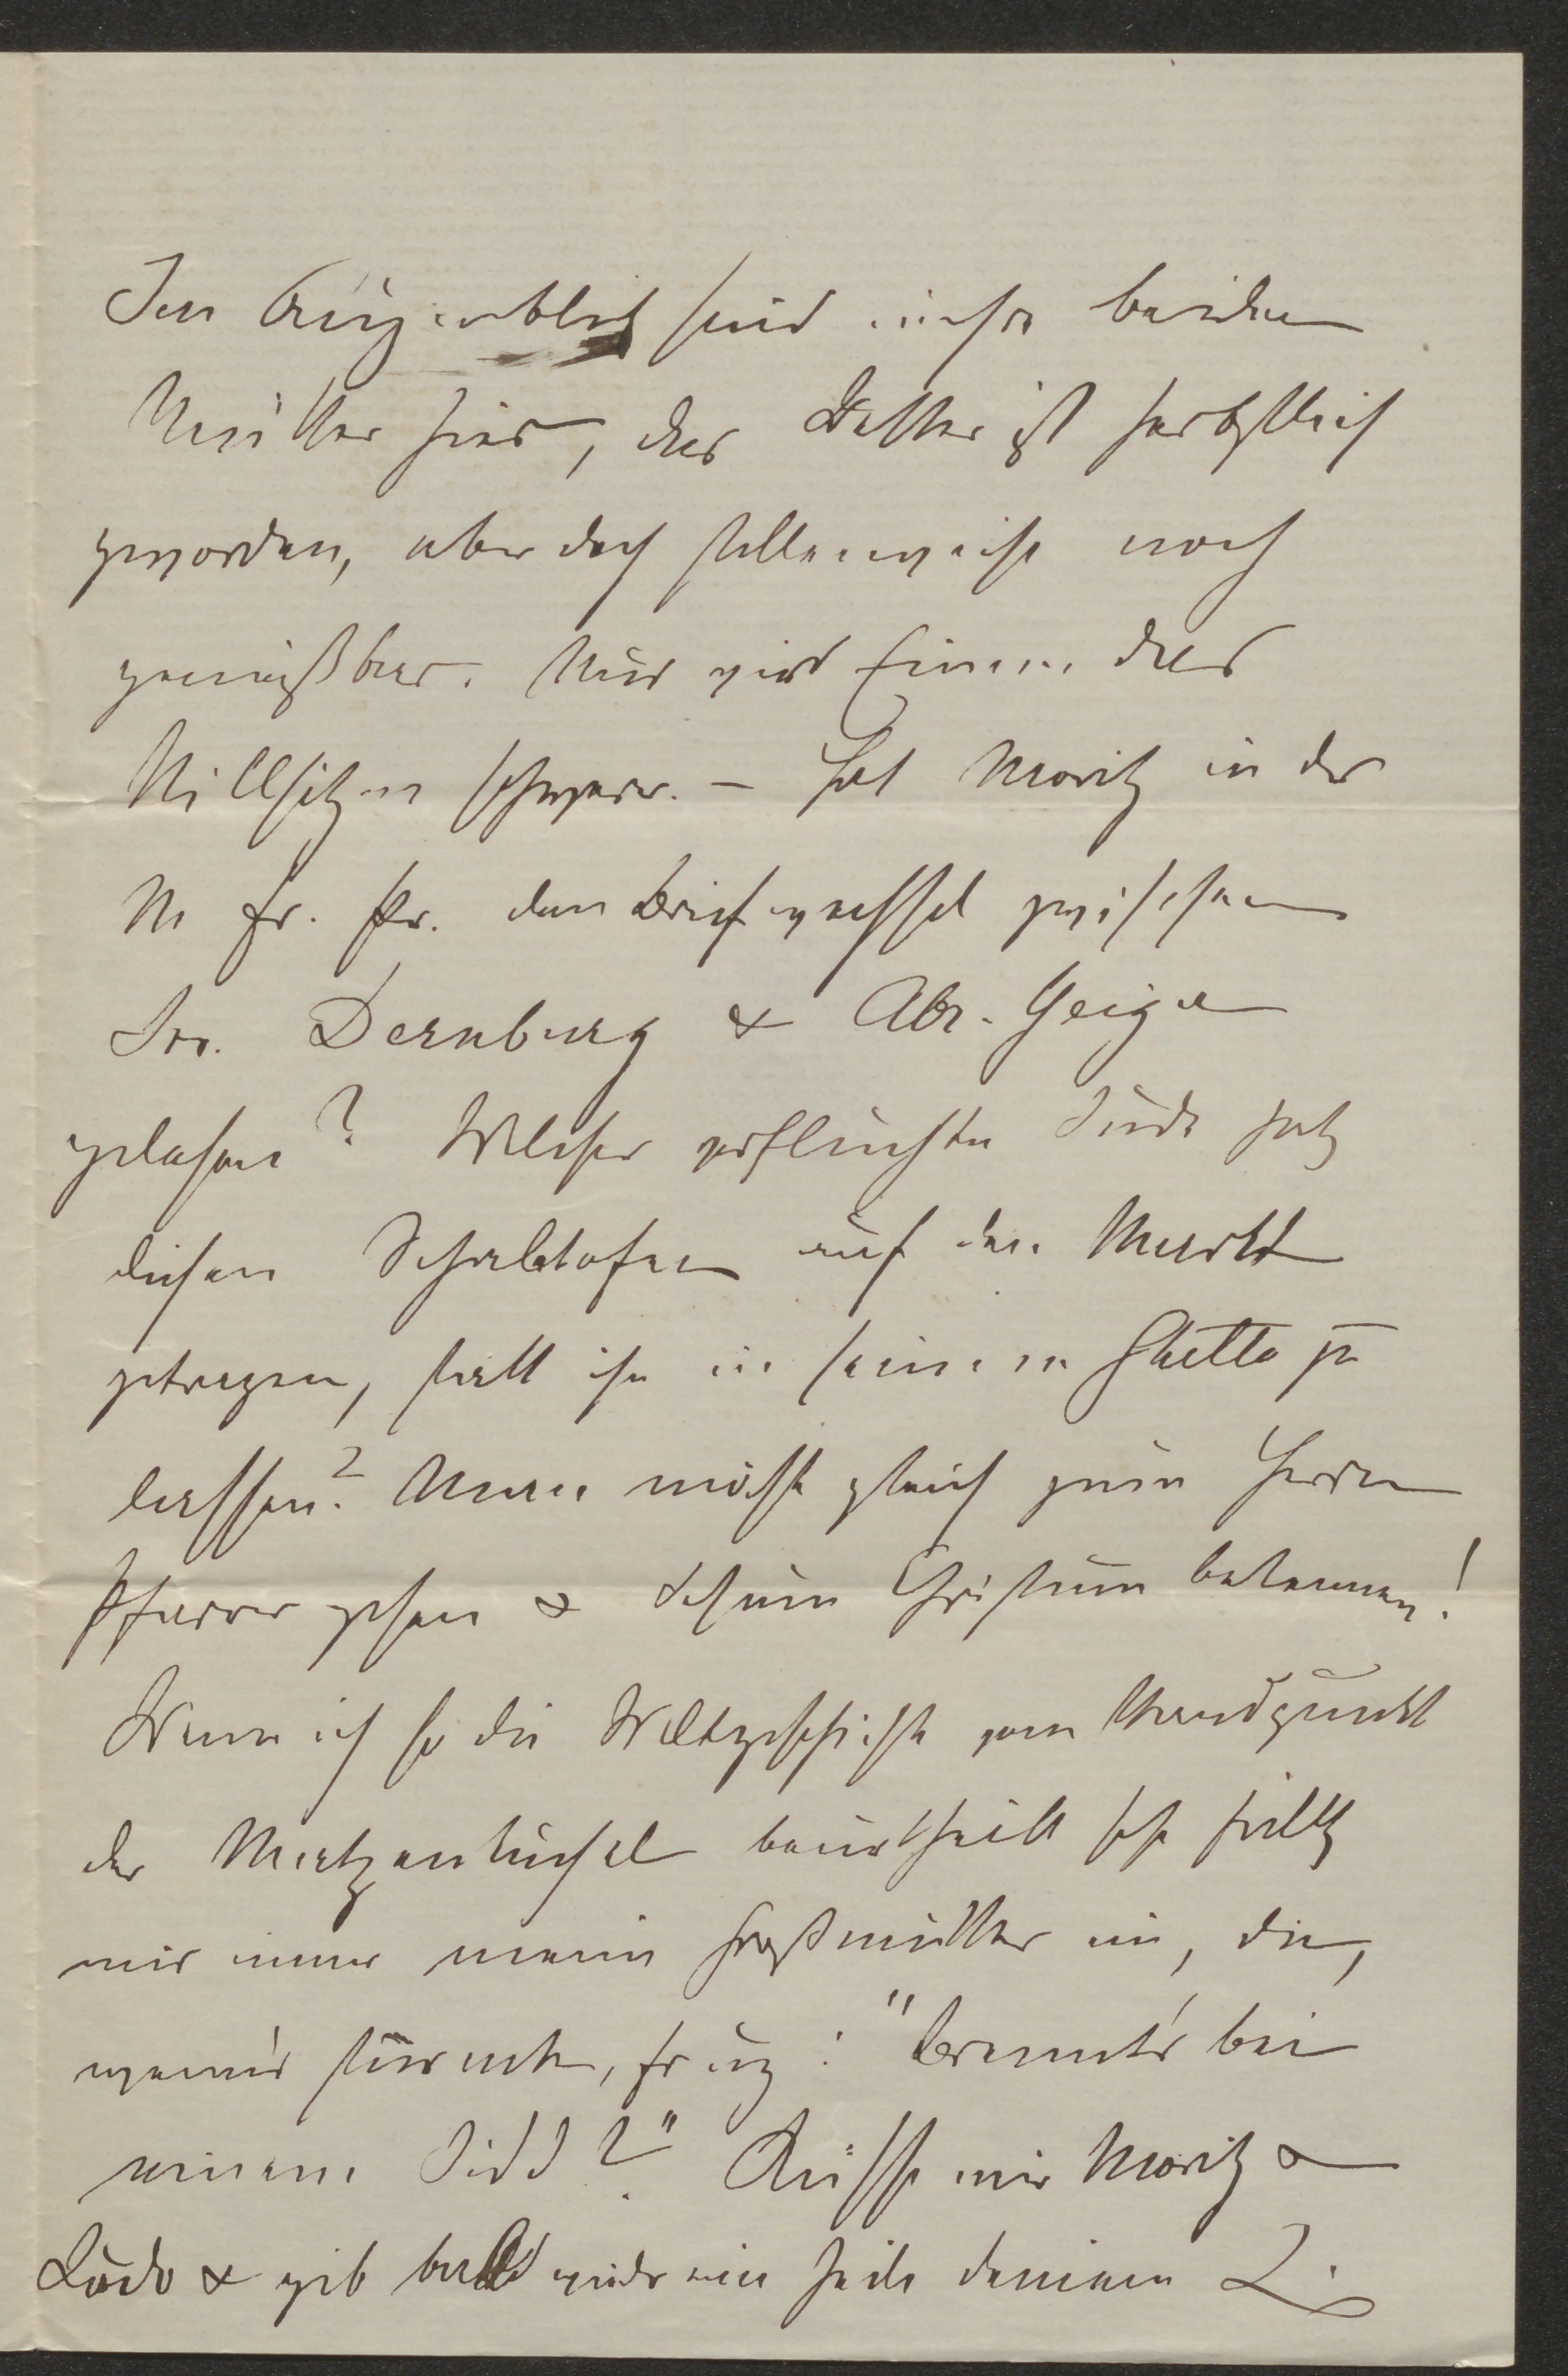 Im Augenblick sind unsre beiden
Mütter hier, das Wetter ist herbstlich
geworden, aber doch stellenweise noch
genießbar. Nur wird Einem das
Stillsitzen schwer. – Hat Moritz in der
N fr. Pr. den Briefwechsel zwischen
Dernburg & Abr. Geiger
gelesen? Welcher verfluchte Jude hat
diesen Schaletofen auf den Markt
getragen, statt ihn in seinem Ghetto zu
lassen? Man möchte gleich zum Herrn
Pfarrer gehen & Jesum Christum bekennen!
Wenn ich so die Weltgeschichte vom Standpunkt
der Matzenküchel beurtheilt sehe fällt
mir immer meine Großmutter ein, die,
wenn's stürmte, frug: "Brennt's bei
einem Jidd?" Küsse mir Moritz &
& gib bald wieder ein Zeile deinem L.